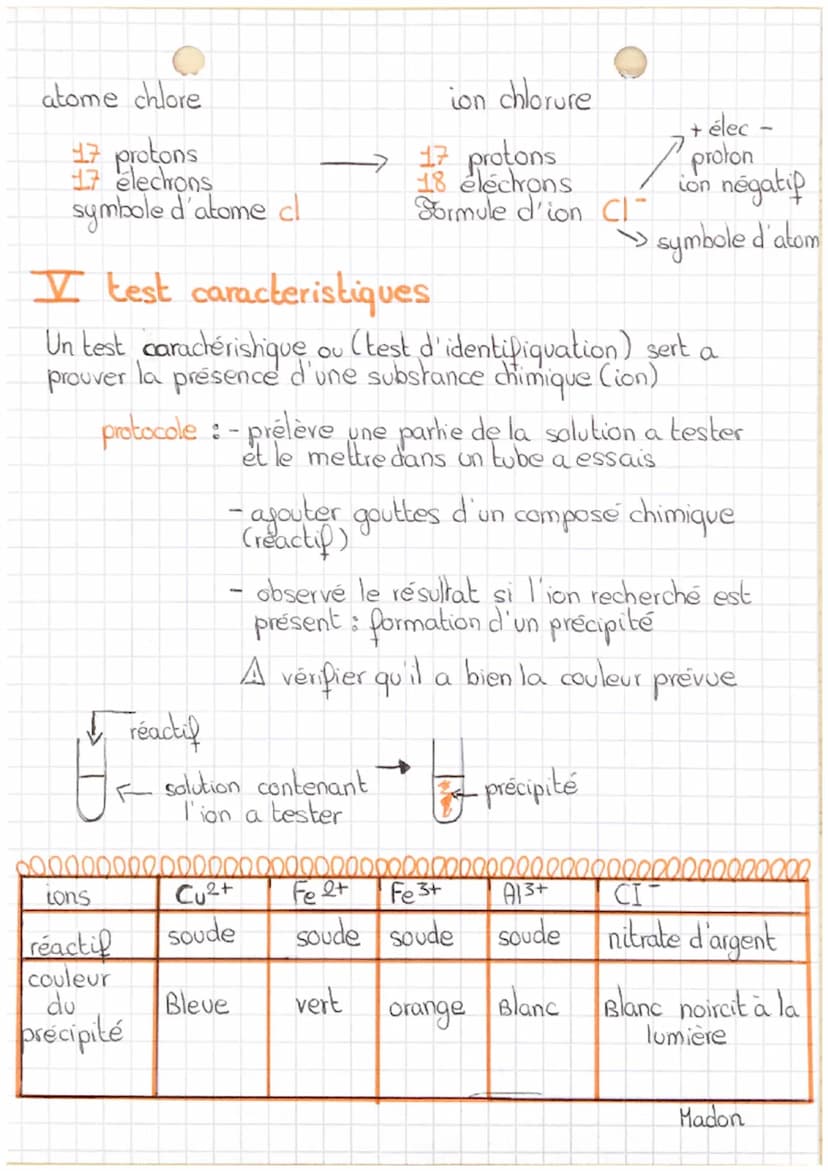 atome chlore
ion chlorure
17 protons
17 électrons
symbole d'atome cl
17 protons
18 éléctrons
Formule d'ion Cl⁻
+ élec -
proton
ion négatif
symbole d'atom
V test caracteristiques
Un test caractéristique ou (test d'identifiquation) sert a
prouver la présence d'une substance chimique (ion)
protocole : - prélève une partie de la solution a tester
et le mettre dans un tube a essais
- ajouter gouttes d'un composé chimique
(réactif)
- observé le résultat si l'ion recherché est
présent : formation d'un précipité
⚠ vérifier qu'il a bien la couleur prévue
réactif
solution contenant
l'ion a tester
précipité
ions Cu2+ Fe2+ Fe3+ Al3+ Cl-
réactif soude soude soude soude nitrate d'argent
couleur
du
précipité
Bleue vert orange Blanc Blanc noircit à la
lumière
Madon